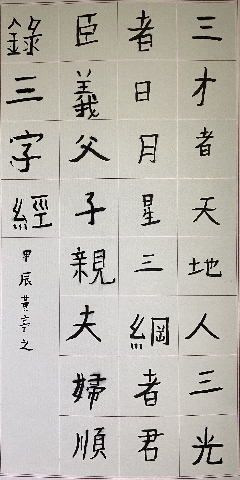 三才者天地人三光
者日月星三綱者君
臣義父子親夫婦順
錄三字經
甲辰黃亭之